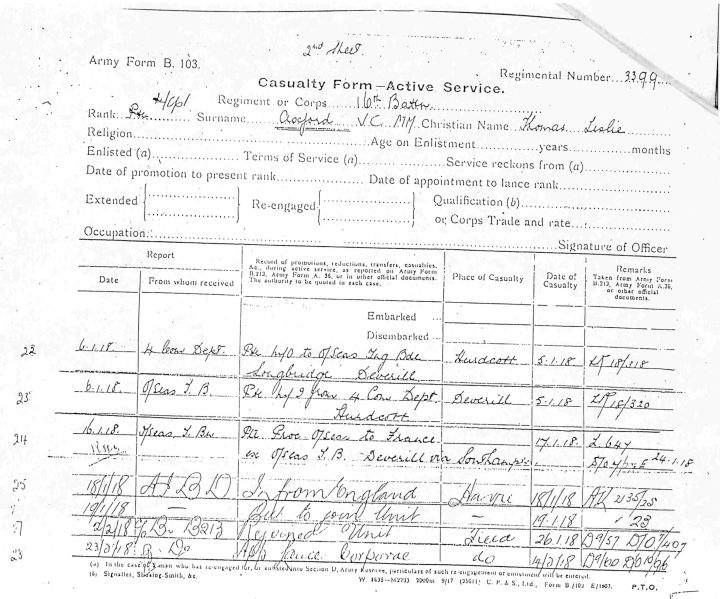 2nd Sheet.
Army Form B. 103.
Regimental Number 3399
Casualty Form—Active Service.
Regiment or Corps 16th Battn
Rank Pte L/Cpl Surname Axford VC. MM. Christian Name Thomas Leslie
Religion Age on Enlistment years months
Enlisted (a) Terms of Service (a) Service reckons from (a)
Date of promotion to present rank Date of appointment to lance rank
Extended Re-engaged Qualification (b)
or Corps Trade and rate
Occupation Signature of Officer
Report
Date From whom received
Record of promotions, reductions, transfers, casualties, &c., during active service, as reported on Army Form B.213, Army Form A. 36, or in other official documents. The authority to be quoted in each case.
Place of Casualty
Date of Casualty
Remarks
Taken from Army Form B.213, Army Form A.36, or other official documents.
Embarked
Disembarked
22 6.1.18. 4 Con Dept. Pte to O/Seas Trg Bde Hurdcott 5.1.18
Longbridge Deverill
23 6.1.18. O/Seas T.B. Pte from 4 Con. Dept. Deverill 5.1.18 18/320
Hurdcott
24 16.1.18 O/seas T. Bn Pte Proc. O/seas to France 17.1.18. 647
ex O/seas T.B. Deverill via Southampt. 24.1.18
25 18/1/18 A I B D In from England Havre 18/1/18
19/1/18 — Bull to join Unit — 19.1.18 " 23
27 2/2/18 B213 Rejoined Unit Field 26.1.18 D9/57
23/3/18 Do App Lance Corporal do 14/3/18
(a) In the case of a man who has re-engaged for, or enlisted into Section D, Army Reserve, particulars of such re-engagement or enlistment will be entered.
(b) Signaller, Shoeing-Smith, &c. W. 1635—M2733 2000m 9/17 C. P. & S., Ltd., Form B./103 E/1607. P.T.O.